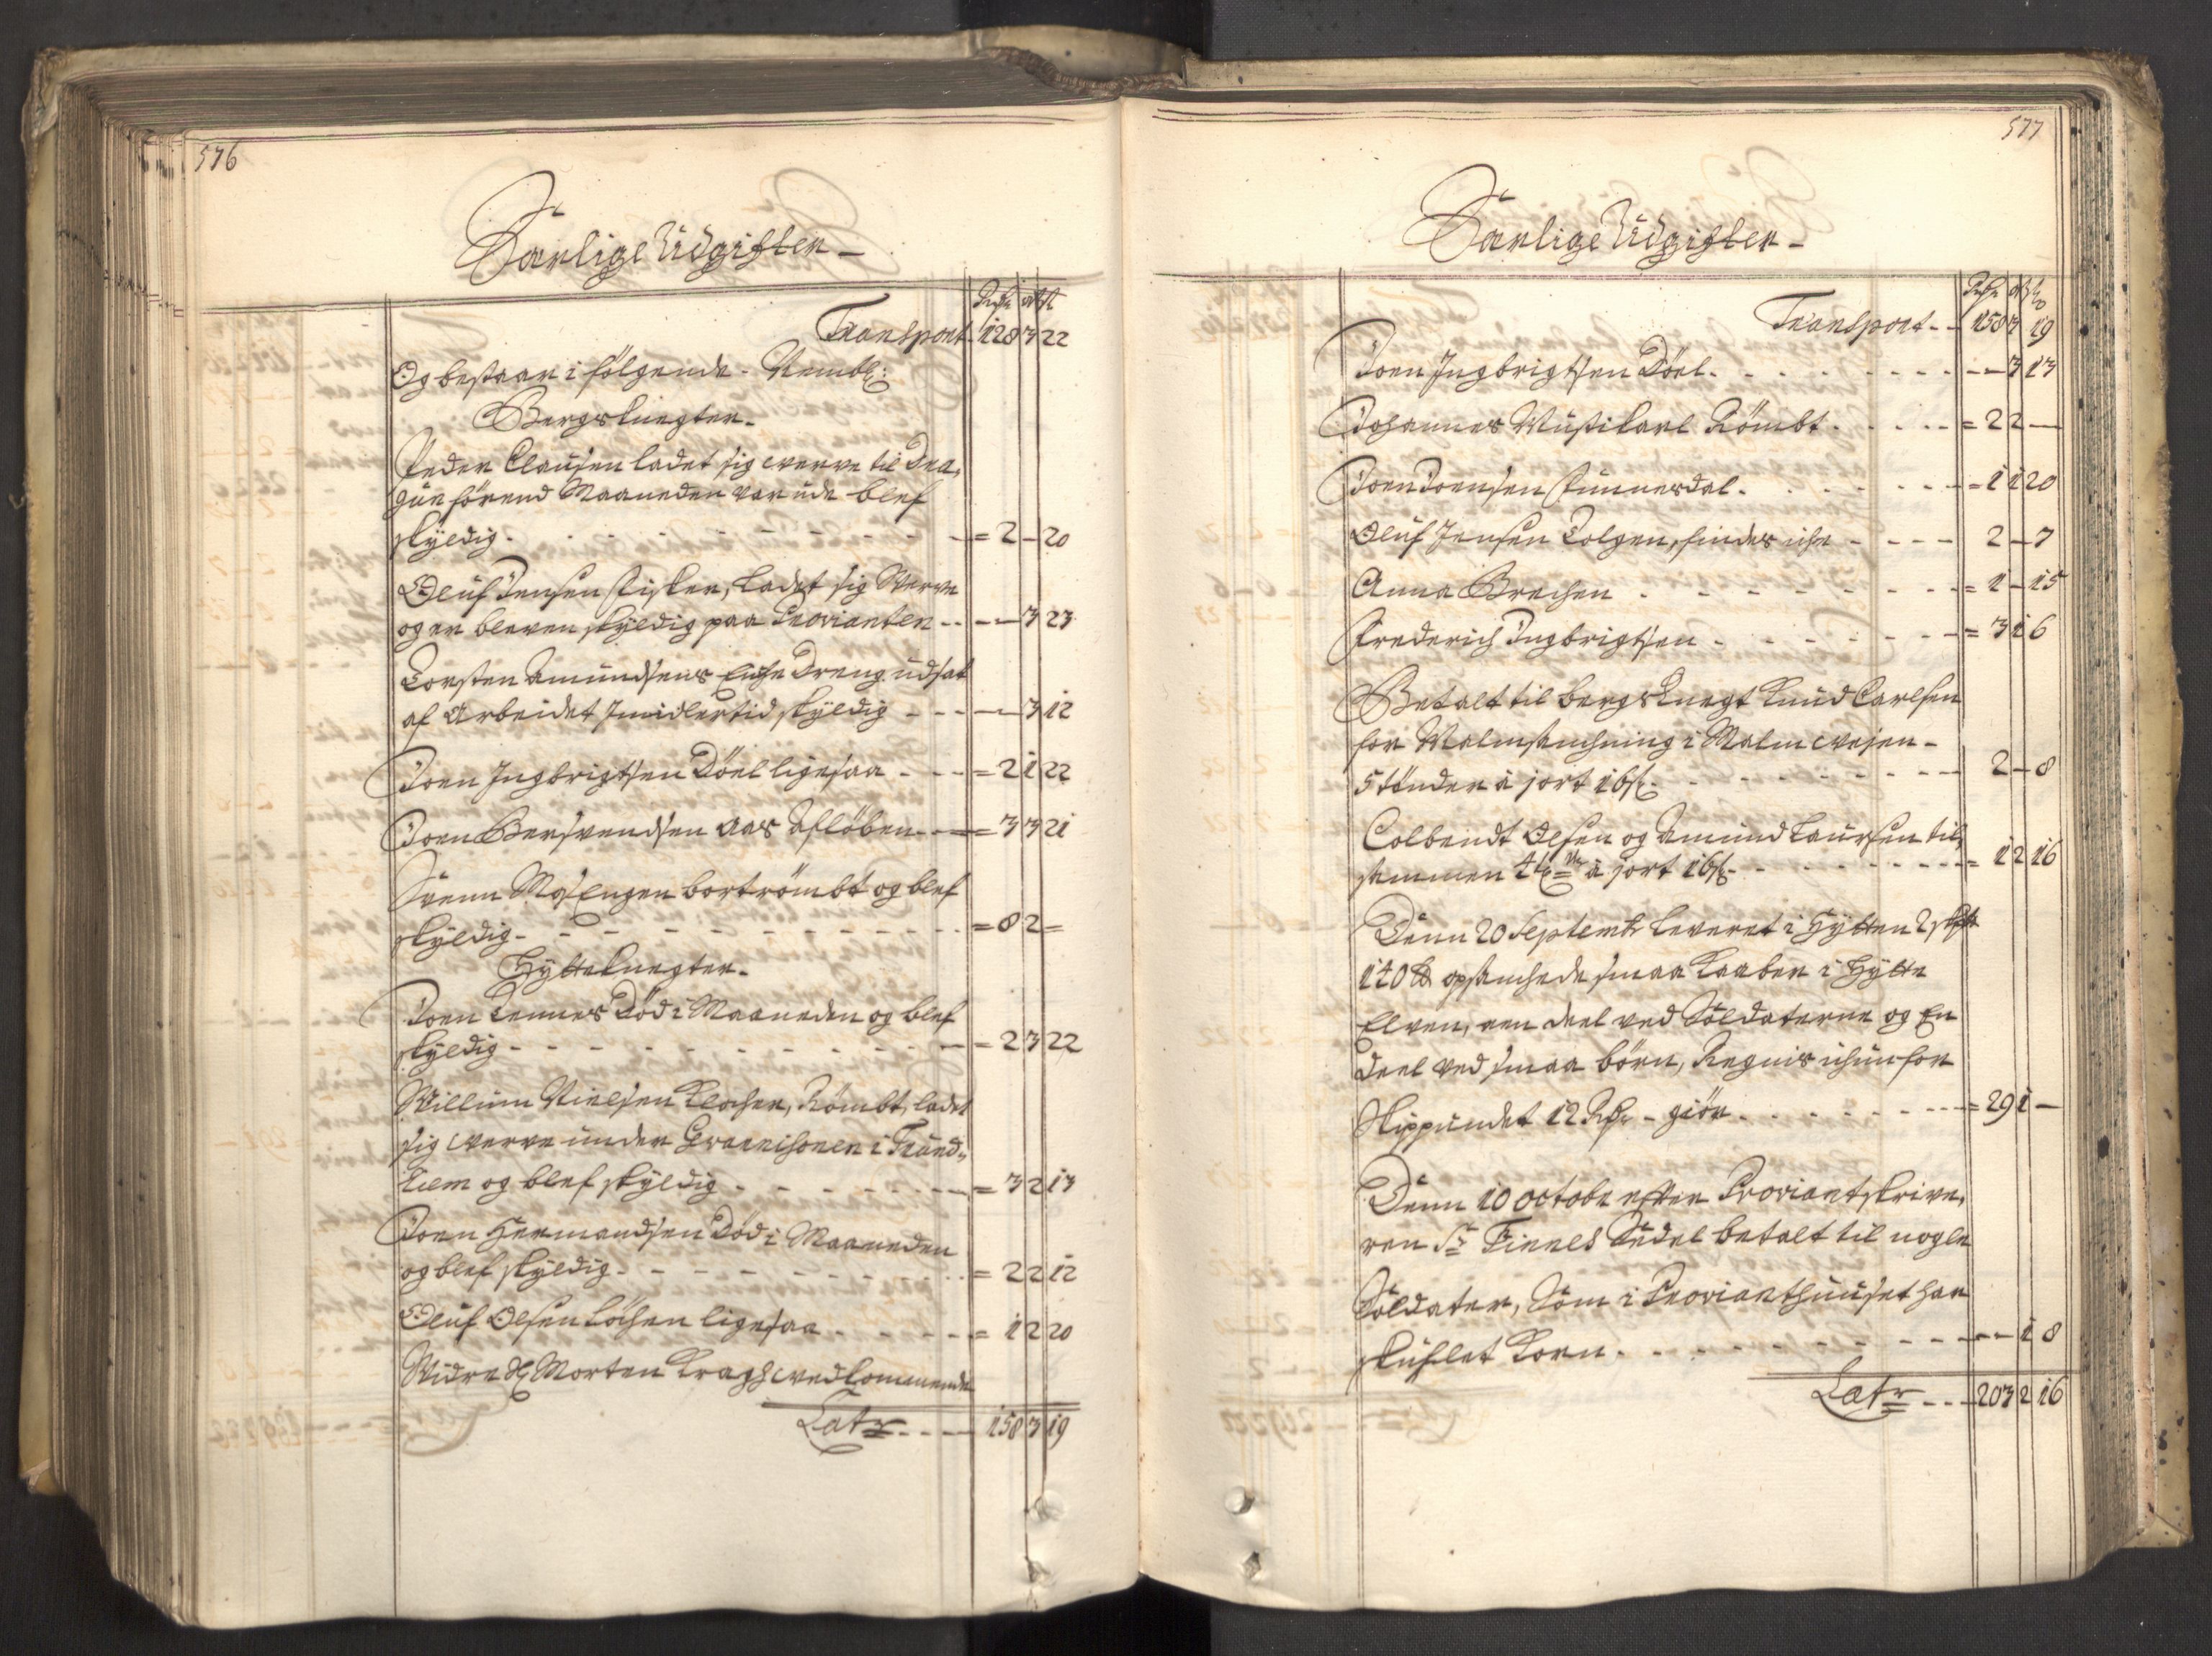 576
Særlige Udgifter
Rdr ort s
Transport 128 3 22
Og bestaar i følgende. Nembl:
Bergsknegter.
Peder Clausen ladet sig werve til Dra-
gun førend Maaneden var ude blef
skyldig = 2 - 20
Oluf Jensen Fisker, Ladet sig Werve
og er bleven skyldig paa Provianten - 3 23
Torsten Amundsens Enche Dreng udsat
af Arbeidet Imidlertid skyldig - 3 12
Joen Ingbrigtsen Döel ligesaa = 2 1 22
Joen Berswendsen Aas Afløben = 3 3 21
Svenn Engen bortrømbt og blef
skyldig = 8 2 =
Hytteknegter.
Joen Tennes Död i Maaneden og blef
skyldig = 2 3 22
Willum Nielsen Klocher, Rømbt, ladet
sig werve under Gvarnisonen i Trund-
hiem og blef skyldig = 3 2 13
Joen Hermandsen Död i Maaneden
og blef skyldig = 2 2 12
Oluf Olsen Löchen ligesaa = 1 2 20
Widre Hr Morten Kragh wedkommende
Latr 158 3 19
577
Særlige Udgifter
Rdr ort s
Transport 158 3 19
Joen Ingbrigtsen Döel - 3 13
Johannes Musikarl Rømbt = 2 2 -
Joen Joensen Sunnerdal = 1 1 20
Oluf Jensen Tolgen, findes iche 2 - 7
Anna Brechen = 1 - 15
Frederich Ingbrigtsen = 3 1 6
Betalt til bergsknegt Knud Carlsen
for Malmsanchning i Malmweien
5 tönder à 1 ort 16 s 2 - 8
Colbendt Olsen og Amund Laursen til-
sammen 4 à 1 ort 16 s = 1 2 16
Denn 20 Septembr leveret i Hytten 2
140 opsanchede smaa Kaaber i Hytte
Elven, een deel ved Soldaterne og En
Deel ved smaa börn, Regnis ichun for
Skippundet 12 Rdr - giör = 29 1 -
Denn 10 octobr efter Proviantskrive-
ren Sr Finnes Sedel betalt til nogle
Soldater, Som i Provianthuuset har
skuflet Korn - 1 8
Latr 203 2 16